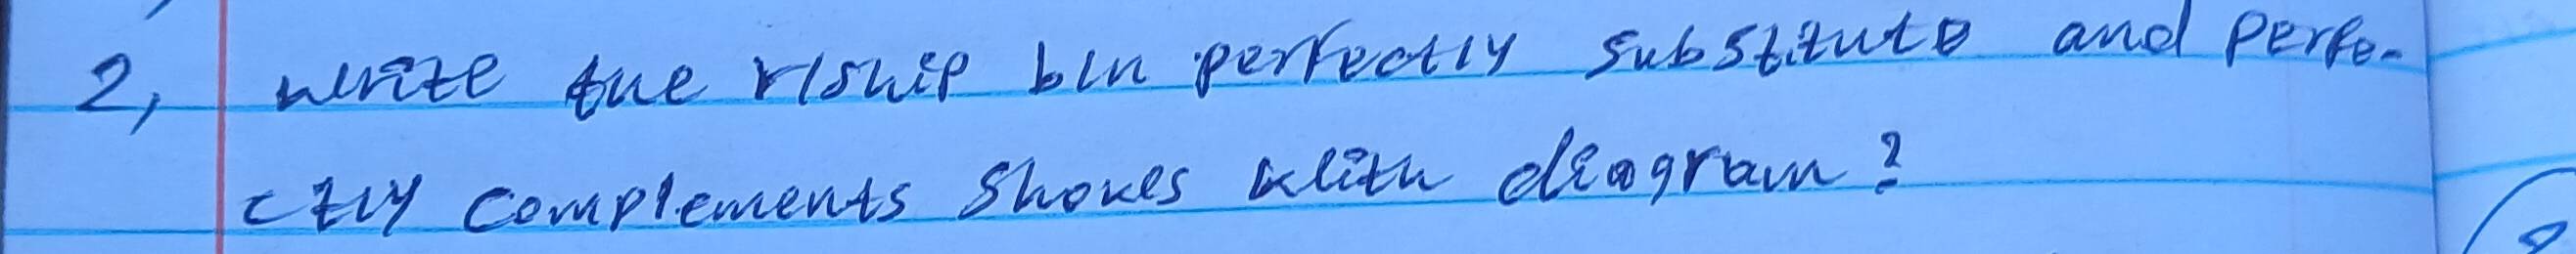 2, write the r/ship b/n perfectly substitute and perfe-
ctly complements shows with diagram?